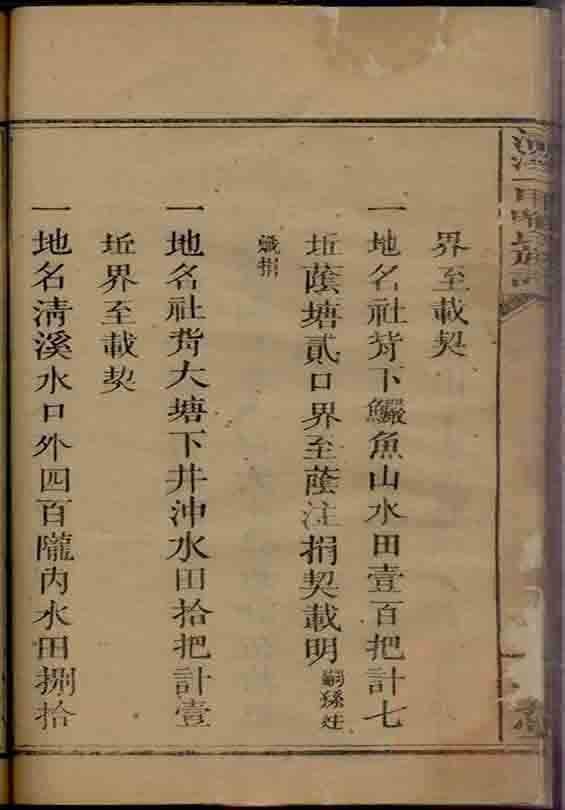 界至載契
一地名社背下鱷魚山水田壹百把計七
坵蔭塘貳口界至蔭注捐契載明嗣孫廷
熾捐
一地名社背大塘下井沖水田拾把計壹
坵界至載契
一地名淸溪水口外四百隴內水田捌拾